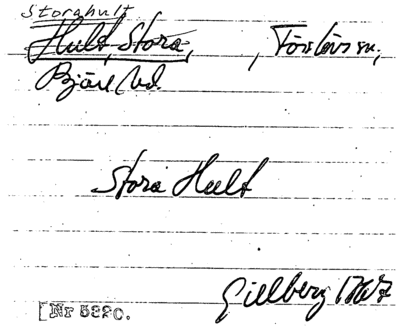 Storahult
Hult, Stora, , Förslövs sn,
Bjäre hd.
Stora Hult
Gillberg 1767
[Nr